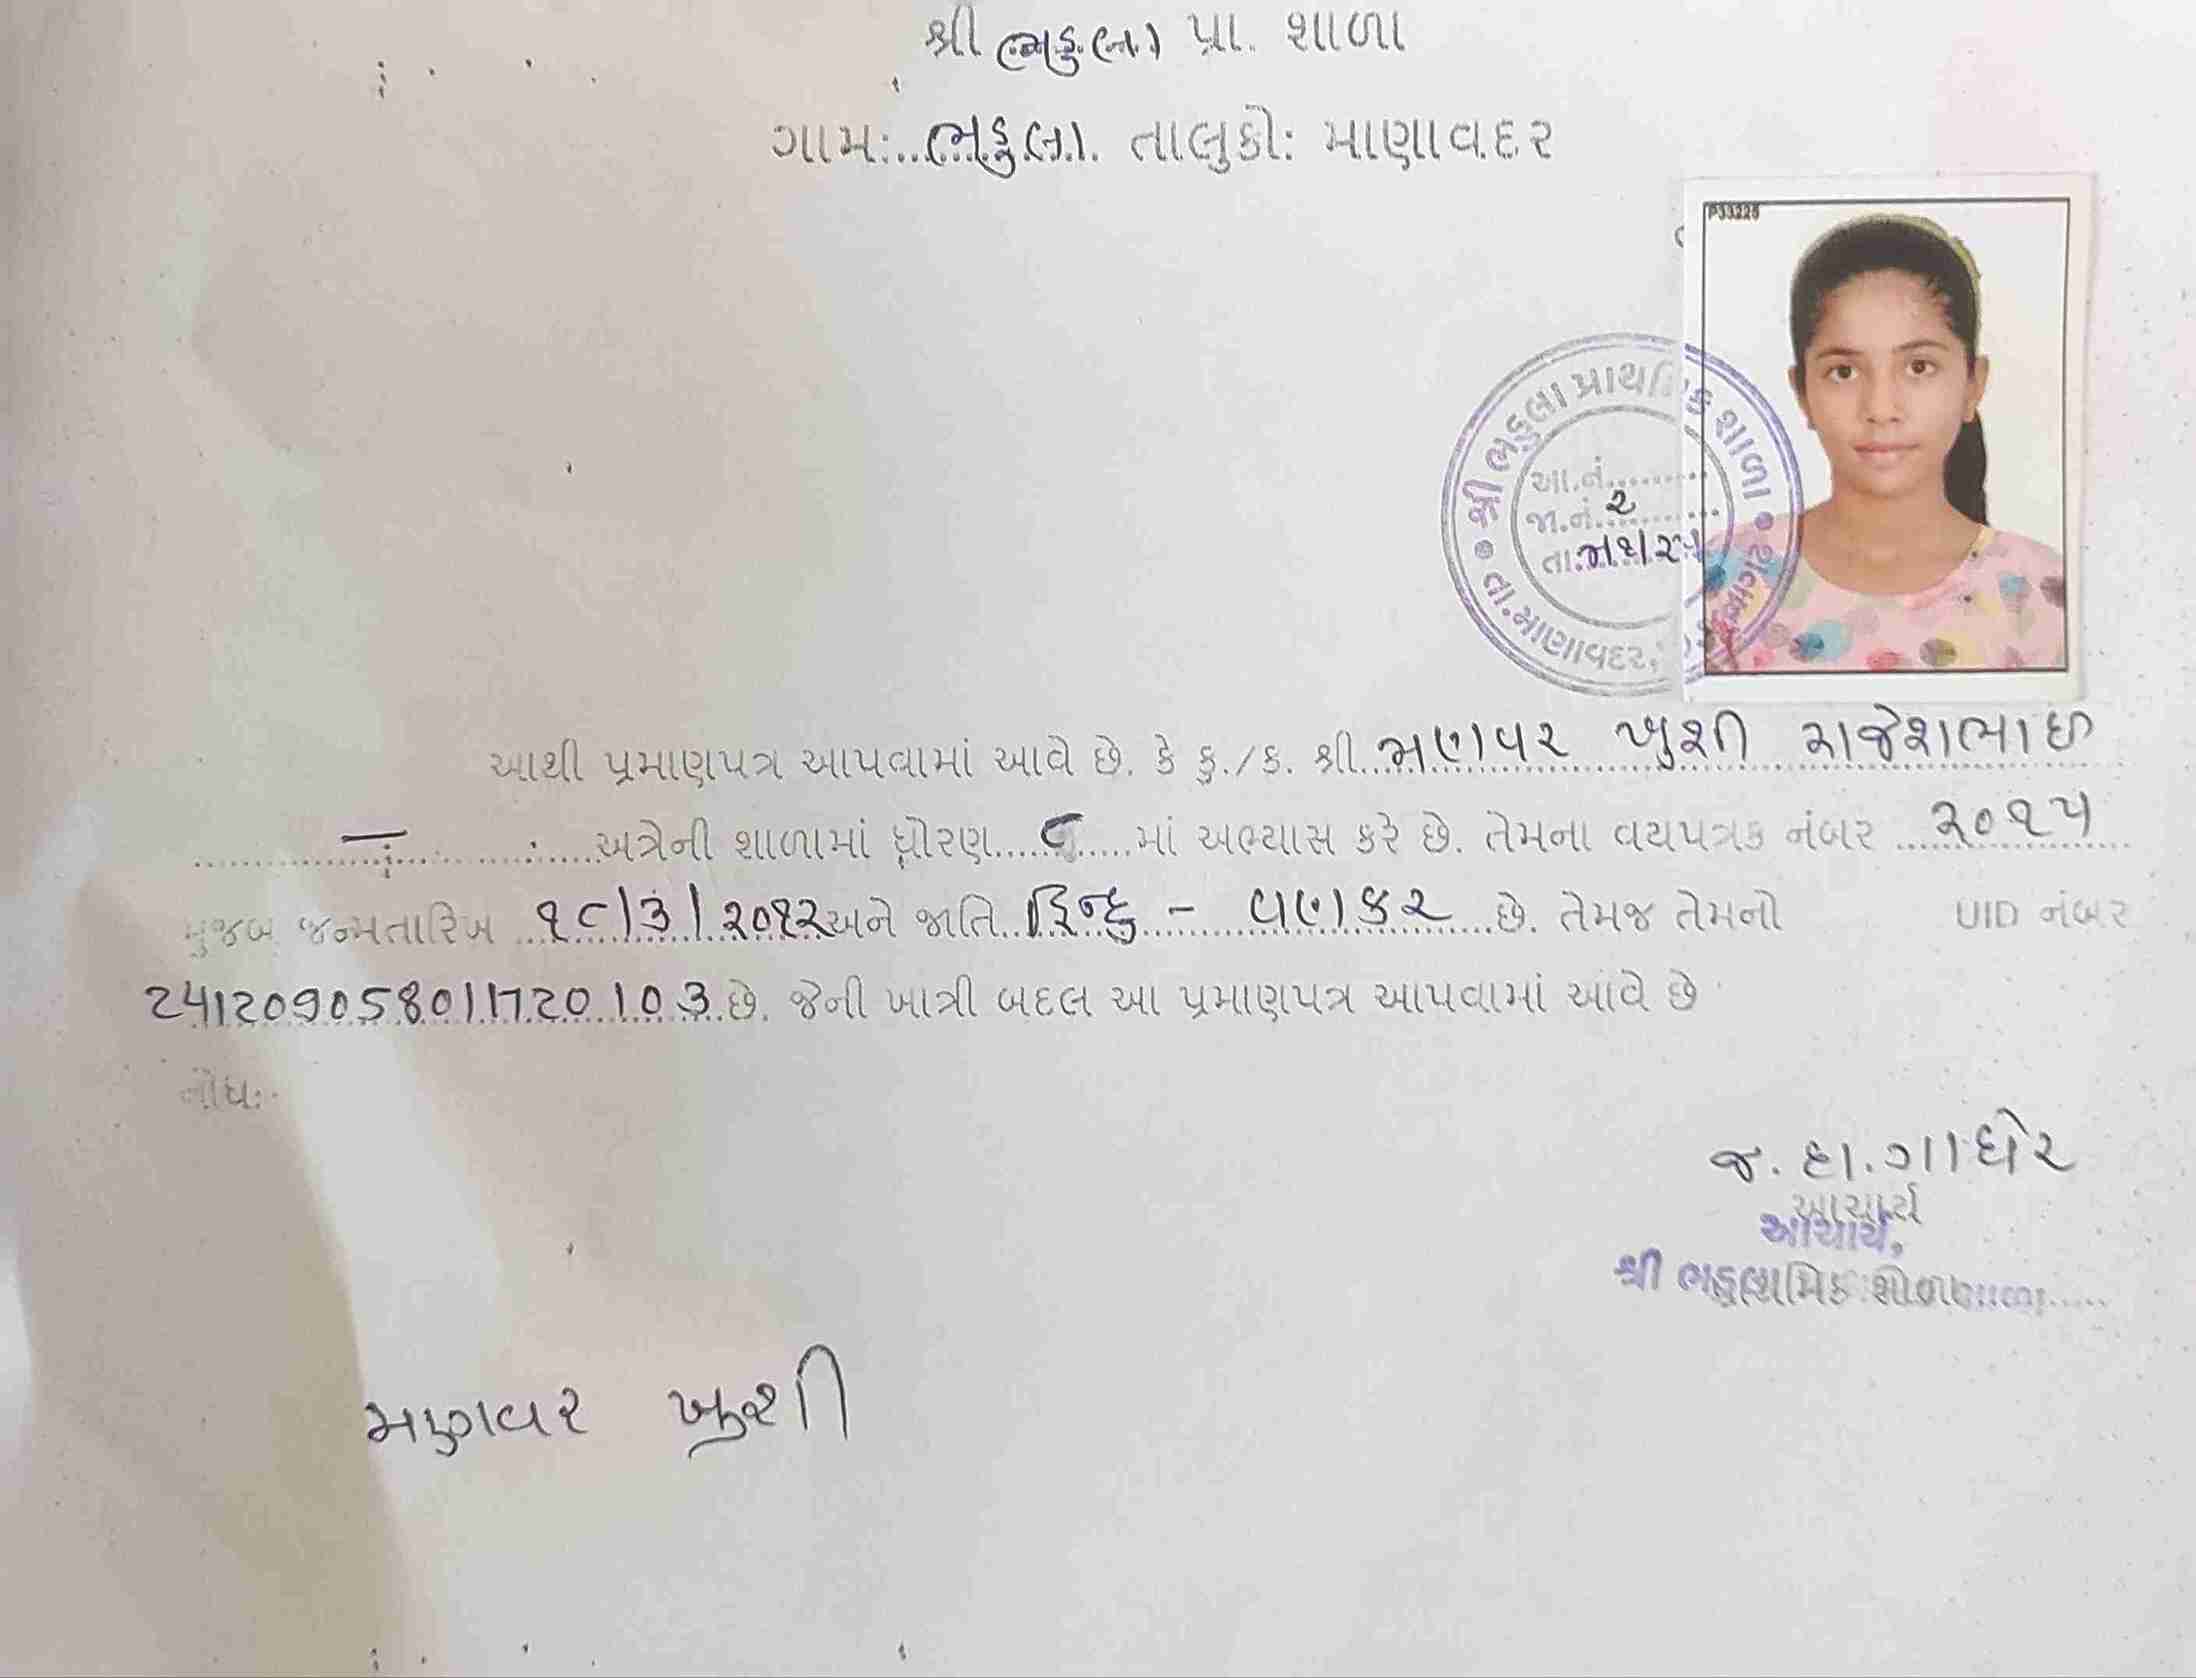 શ્રી ભડુલા પ્રા. શાળા
ગામ:..ભડુલા. તાલુકો: માણાવદર
P33225
શ્રી ભડુલા પ્રાથમિક શાળા
આ.નં.........
જા.નં. ૨
તા.
તા.માણાવદર,
આથી પ્રમાણપત્ર આપવામાં આવે છે. કે કુ./ક. શ્રી...મણવર ખુશી રાજેશભાઇ
અત્રેની શાળામાં ધોરણ......૮......માં અભ્યાસ કરે છે. તેમના વયપત્રક નંબર ...૨૦૧૫
મુજબ જન્મતારિખ ..૧૮/૩/૨૦૧૨ અને જાતિ..હિન્દુ - વણકર...છે. તેમજ તેમનો UID નંબર
241209058011720103..છે. જેની ખાત્રી બદલ આ પ્રમાણપત્ર આપવામાં આવે છે
નોધ:
જ. હા. ગાધેર
આચાર્ય
આચાર્ય,
શ્રી
મણવર ખુશી